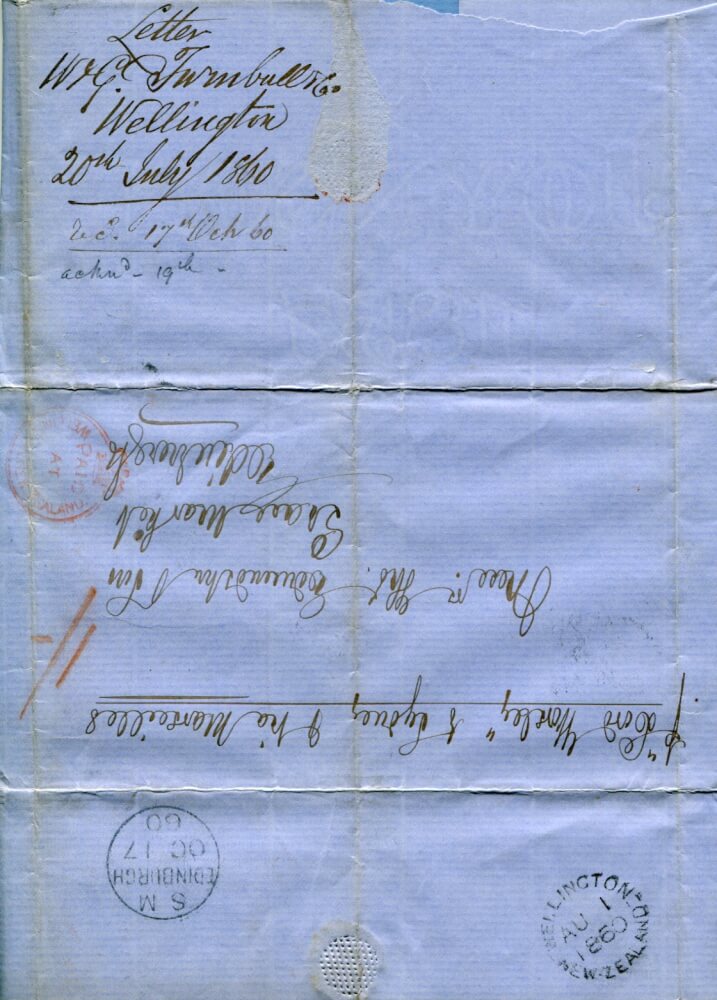 Letter
W & G. Turnbull & Co
Wellington
20th July 1860
recd. 17th Oct 60
acknd - 19th -
p "Lord Worsley" to Sydney & via Marseilles
Messrs. Thos. & Son
Grassmarket
Edinburgh
PAID
AT
S M
EDINBURGH
OC 17
60
WELLINGTON
AU 1
1860
NEW-ZEALAND